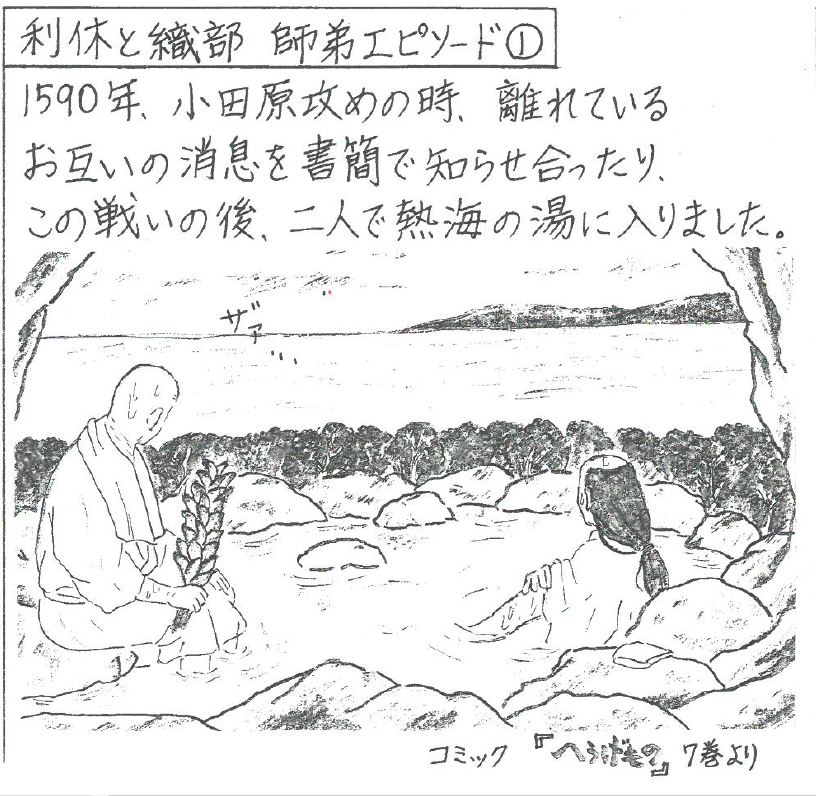 利休と織部 師弟エピソード①
1590年、小田原攻めの時、離れている
お互いの消息を書簡で知らせ合ったり、
この戦いの後、二人で熱海の湯に入りました。
ザァ...
コミック『へうげもの』7巻より